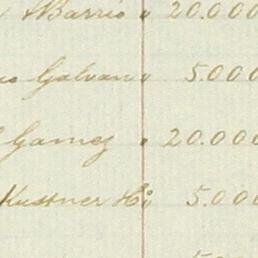 Barrio " 20.000
Galvan " 5.000
Gamez " 20.000
Kustner Hº " 5.000